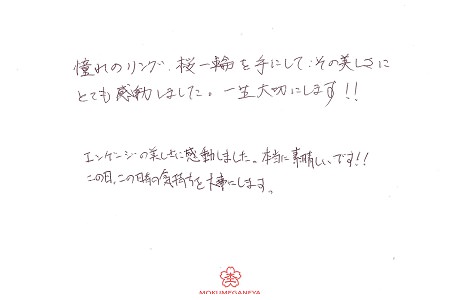 憧れのリング、桜一輪を手にして、その美しさに
とても感動しました。一生大切にします!!
エンゲージの美しさに感動しました。本当に素晴しいです!!
この日、この時の気持ちを大事にします。
MOKUMEGANEYA